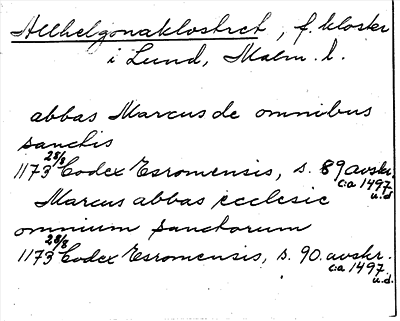 Allhelgonaklostret, f. kloster
i Lund, Malm. l.
abbas Marcus de omnibus
sanctis
1173 28/8 Codex Esromensis, s. 89 avskr.
c:a 1497
u.d.
Marcus abbas ecclesie
omnium sanctorum
1173 28/8 Codex Esromensis, s. 90. avskr.
c:a 1497
u.d.